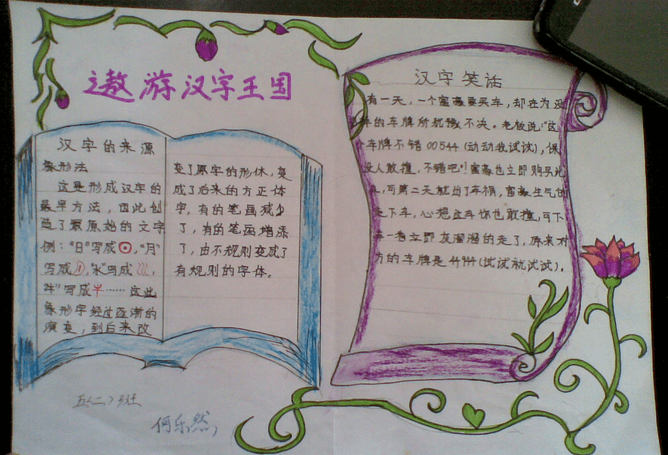 遨游汉字王国
汉字的来源
象形法
这是形成汉字的
最早方法，因此创
造了最原始的文字
例："日"写成⊙，"月"
写成 ，"水"写成 ，
"牛"写成 ……这些
象形字经过逐渐的
演变，到后来改
变了原字的形体，变
成了后来的方正体
字，有的笔画减少
了，有的笔画增添
了，由不规则变成了
有规则的字体。
汉字笑话
有一天，一个富豪要买车，却在为选
的车牌所犹豫不决。老板说："这
车牌不错00544（动动我试试），保
没人敢撞，不错吧！富豪也立即购买此
，可第二天就出了车祸，富豪生气的
走下车，心想这车你也敢撞，可下
一看立即灰溜溜的走了，原来对
方的车牌是44944（试试就试试）。
五〈二〉班
何乐然